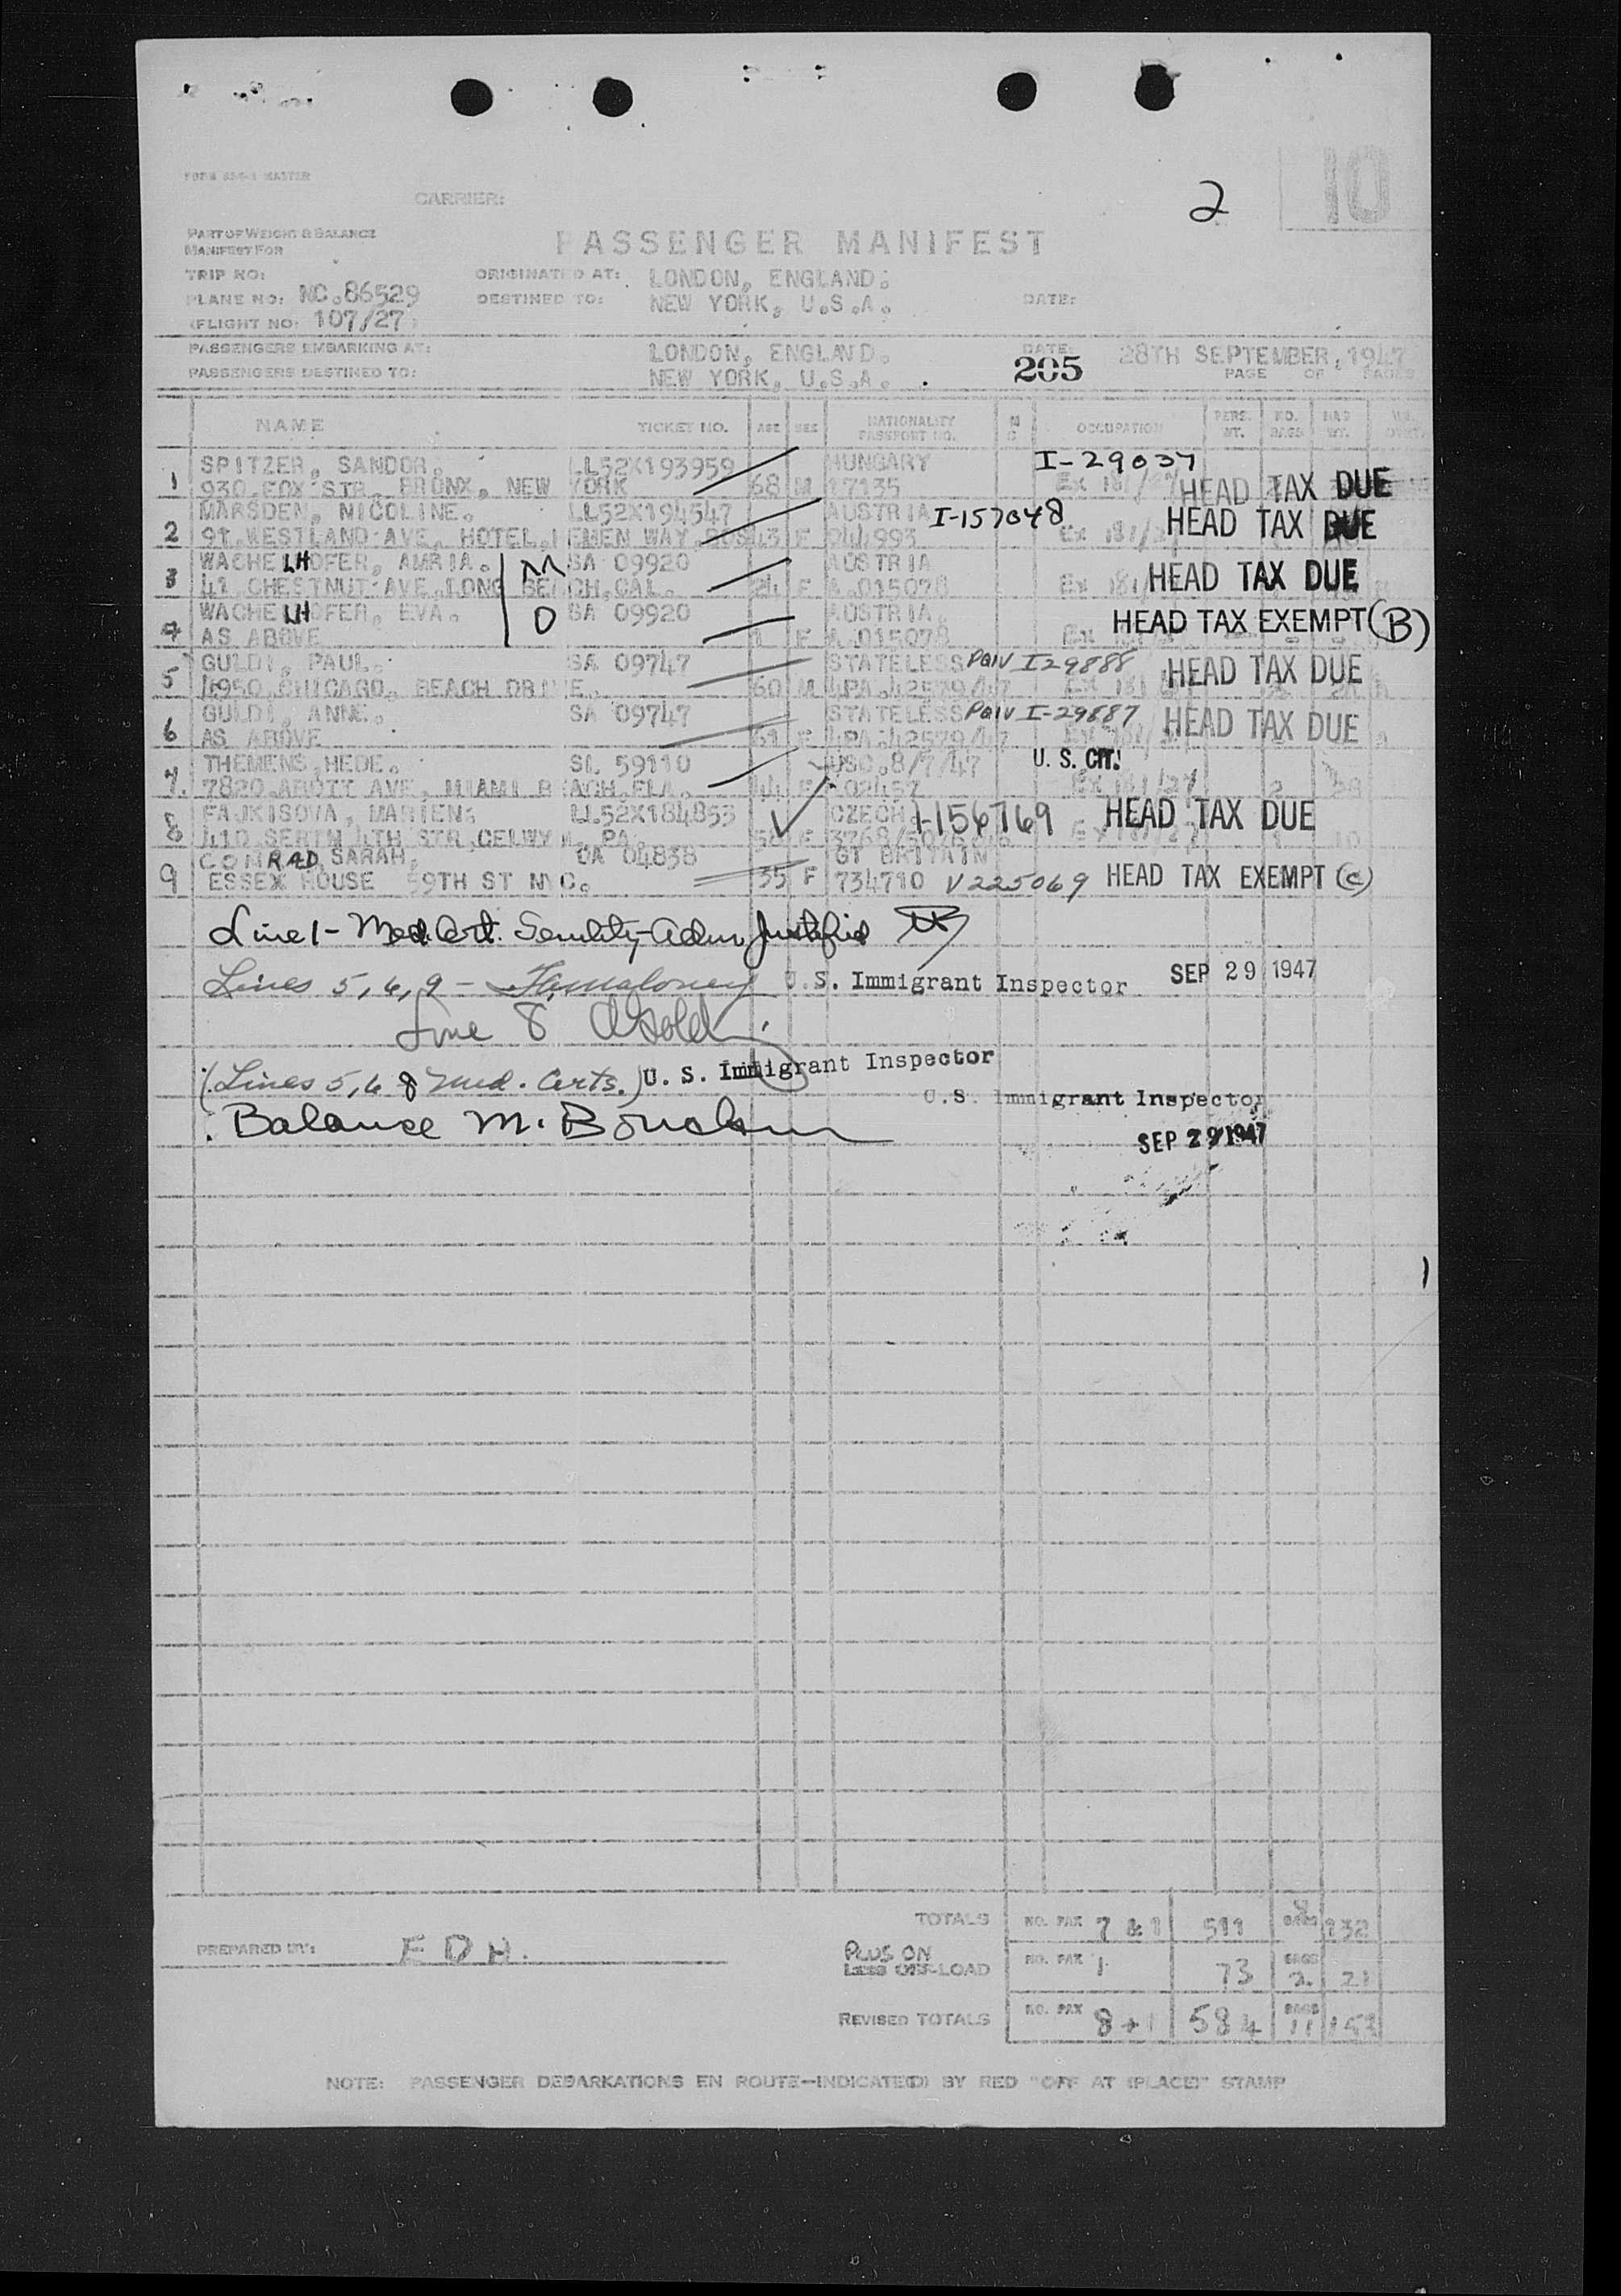 2
10
FORM
MASTER
CARRIER:
PART OF WEIGHT & BALANCE
MANIFEST FOR
PASSENGER MANIFEST
TRIP NO:
ORIGINATED AT: LONDON, ENGLAND.
PLANE NO: NC.86529
DESTINED TO: NEW YORK, U.S.A.
DATE:
(FLIGHT NO: 107/27)
PASSENGERS EMBARKING AT: LONDON, ENGLAND.
DATE: 28TH SEPTEMBER, 1947
205
PASSENGERS DESTINED TO: NEW YORK, U.S.A.
PAGE OF PAGES
NAME TICKET NO. AGE SEX NATIONALITY PASSPORT NO. OCCUPATION PERS. WT. NO. BAGS BAG WT.
1 SPITZER, SANDOR. LL52X193959 HUNGARY I-29037
930 FOX STR. BRONX, NEW YORK 68 M 17135 HEAD TAX DUE
MARSDEN, NICOLINE. LL52X194547 AUSTRIA I-157048
2 91, WESTLAND AVE, HOTEL, HEMEN WAY, 43 F 044993 HEAD TAX DUE
WACHELHOFER, AMRIA. M SA 09920 AUSTRIA
3 41, CHESTNUT AVE, LONG BEACH, CAL. 24 F A.015078 HEAD TAX DUE
WACHELHOFER, EVA. D SA 09920 AUSTRIA.
4 AS ABOVE 1 F A.015078 HEAD TAX EXEMPT (B)
GULDI, PAUL. SA 09747 STATELESS PQIV I29888
5 4950 CHICAGO, BEACH DRIVE. 60 M 4PA.42579/47 HEAD TAX DUE
GULDI, ANNE. SA 09747 STATELESS PQIV I-29887
6 AS ABOVE 61 F 4PA.42579/47 HEAD TAX DUE
THEMENS, HEDE. SL 59110 USC.8/7/47 U. S. CIT.
7. 7820 ABOTT AVE, MIAMI BEACH, FLA. 44 F 02457 2
FAJKISOVA, MARIENS LL52X184853 CZECH. I-156769 HEAD TAX DUE
8 410 SERTM 4TH STR, CELWYN, PA. F
CONRAD, SARAH. OA 04838 GT BRITAIN
9 ESSEX HOUSE 59TH ST NYC. 35 F 734710 V225069 HEAD TAX EXEMPT (C)
Line 1 - Med. Cert. Senility - Adm. Justified
Lines 5, 6, 9 - U. S. Immigrant Inspector SEP 29 1947
Line 8
(Lines 5, 6 & Med. Certs.) U. S. Immigrant Inspector
U. S. Immigrant Inspector
Balance M.
SEP 29 1947
TOTALS NO. PAX 7 & 1 511 BAGS 132
PREPARED BY: E D H.
PLUS ON
LESS OFF-LOAD NO. PAX 1 73 BAGS 2 21
REVISED TOTALS NO. PAX 8+1 584 BAGS 11 153
NOTE: PASSENGER DEBARKATIONS EN ROUTE—INDICATED BY RED "OFF AT (PLACE)" STAMP